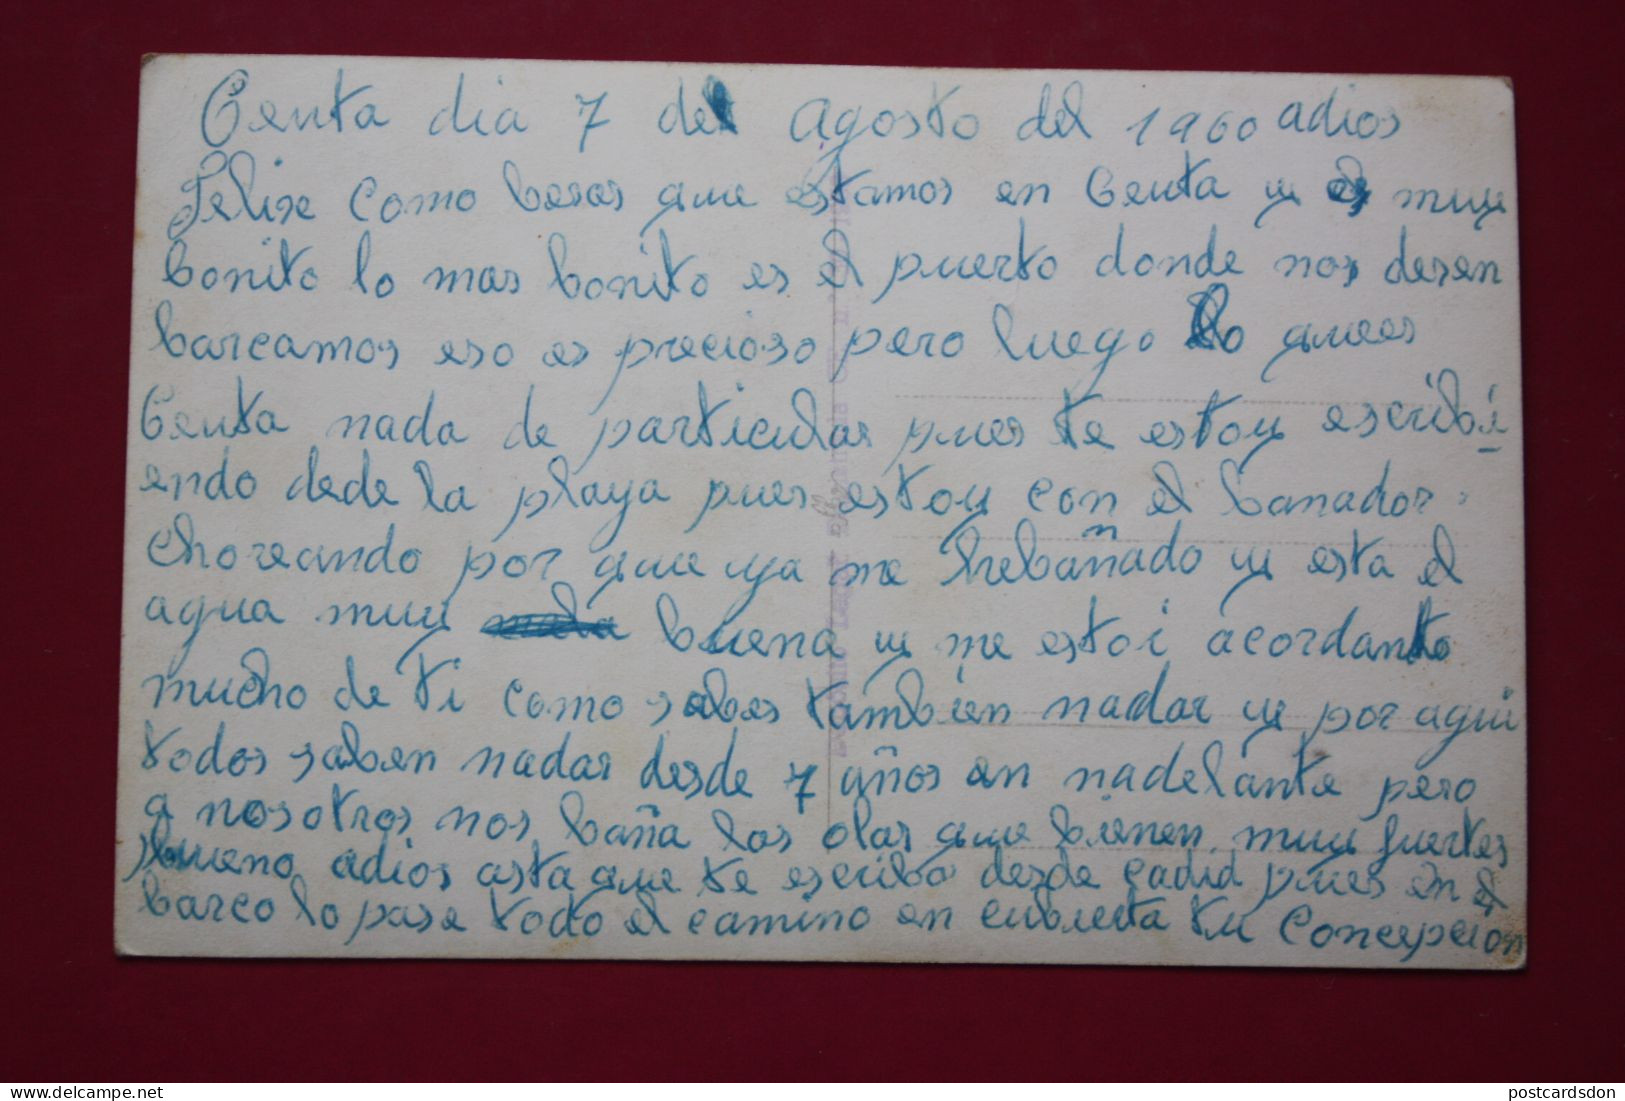 Ceuta dia 7 del Agosto del 1960 adios
Felise como beses que estamos en Ceuta y es muy
bonito lo mas bonito es el puerto donde nos desen
barcamos eso es precioso pero luego lo que es
Ceuta nada de particular pues te estoy escribi
endo dede la playa pues estoy con el banador
choreando por que ya me hebañado y esta el
agua muy buena y me estoi acordanto
mucho de ti como sabes tambien nadar y por aqui
todos saben nadar desde 7 años en nadelante pero
a nosotros nos baña las olas que bienen muy fuertes
bueno adios asta que te escriba desde cadid pues en el
barco lo pase todo el camino en cubierta tu Concepcion
postcardsdon